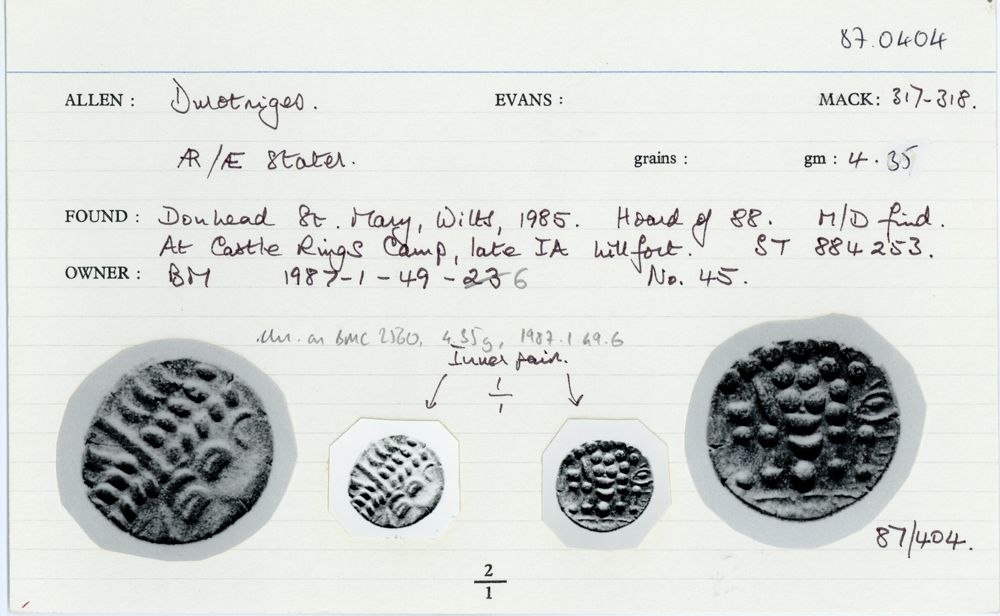 87.0404
ALLEN : Durotriges. EVANS : MACK: 317-318.
AR/Æ Stater. grains : gm : 4.35
FOUND : Donhead St. Mary, Wilts, 1985. Hoard of 88. M/D find.
At Castle Rings Camp, late IA hillfort. ST 884253.
OWNER : BM 1987-1-49-23 6 No. 45.
as BMC 2560, 4.35g, 1987.1 49.6
Inner pair.
1/1
87/404.
2/1